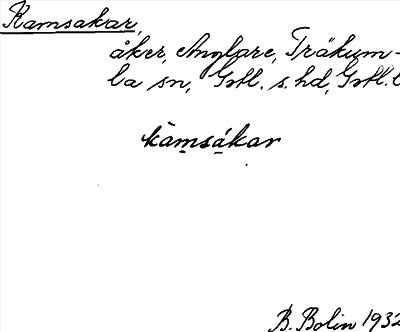 Kamsakar,
åker, Anglare, Träkum-
la sn, Gotl. s. hd, Gotl. l
kàmsákar
B. Bolin 1932